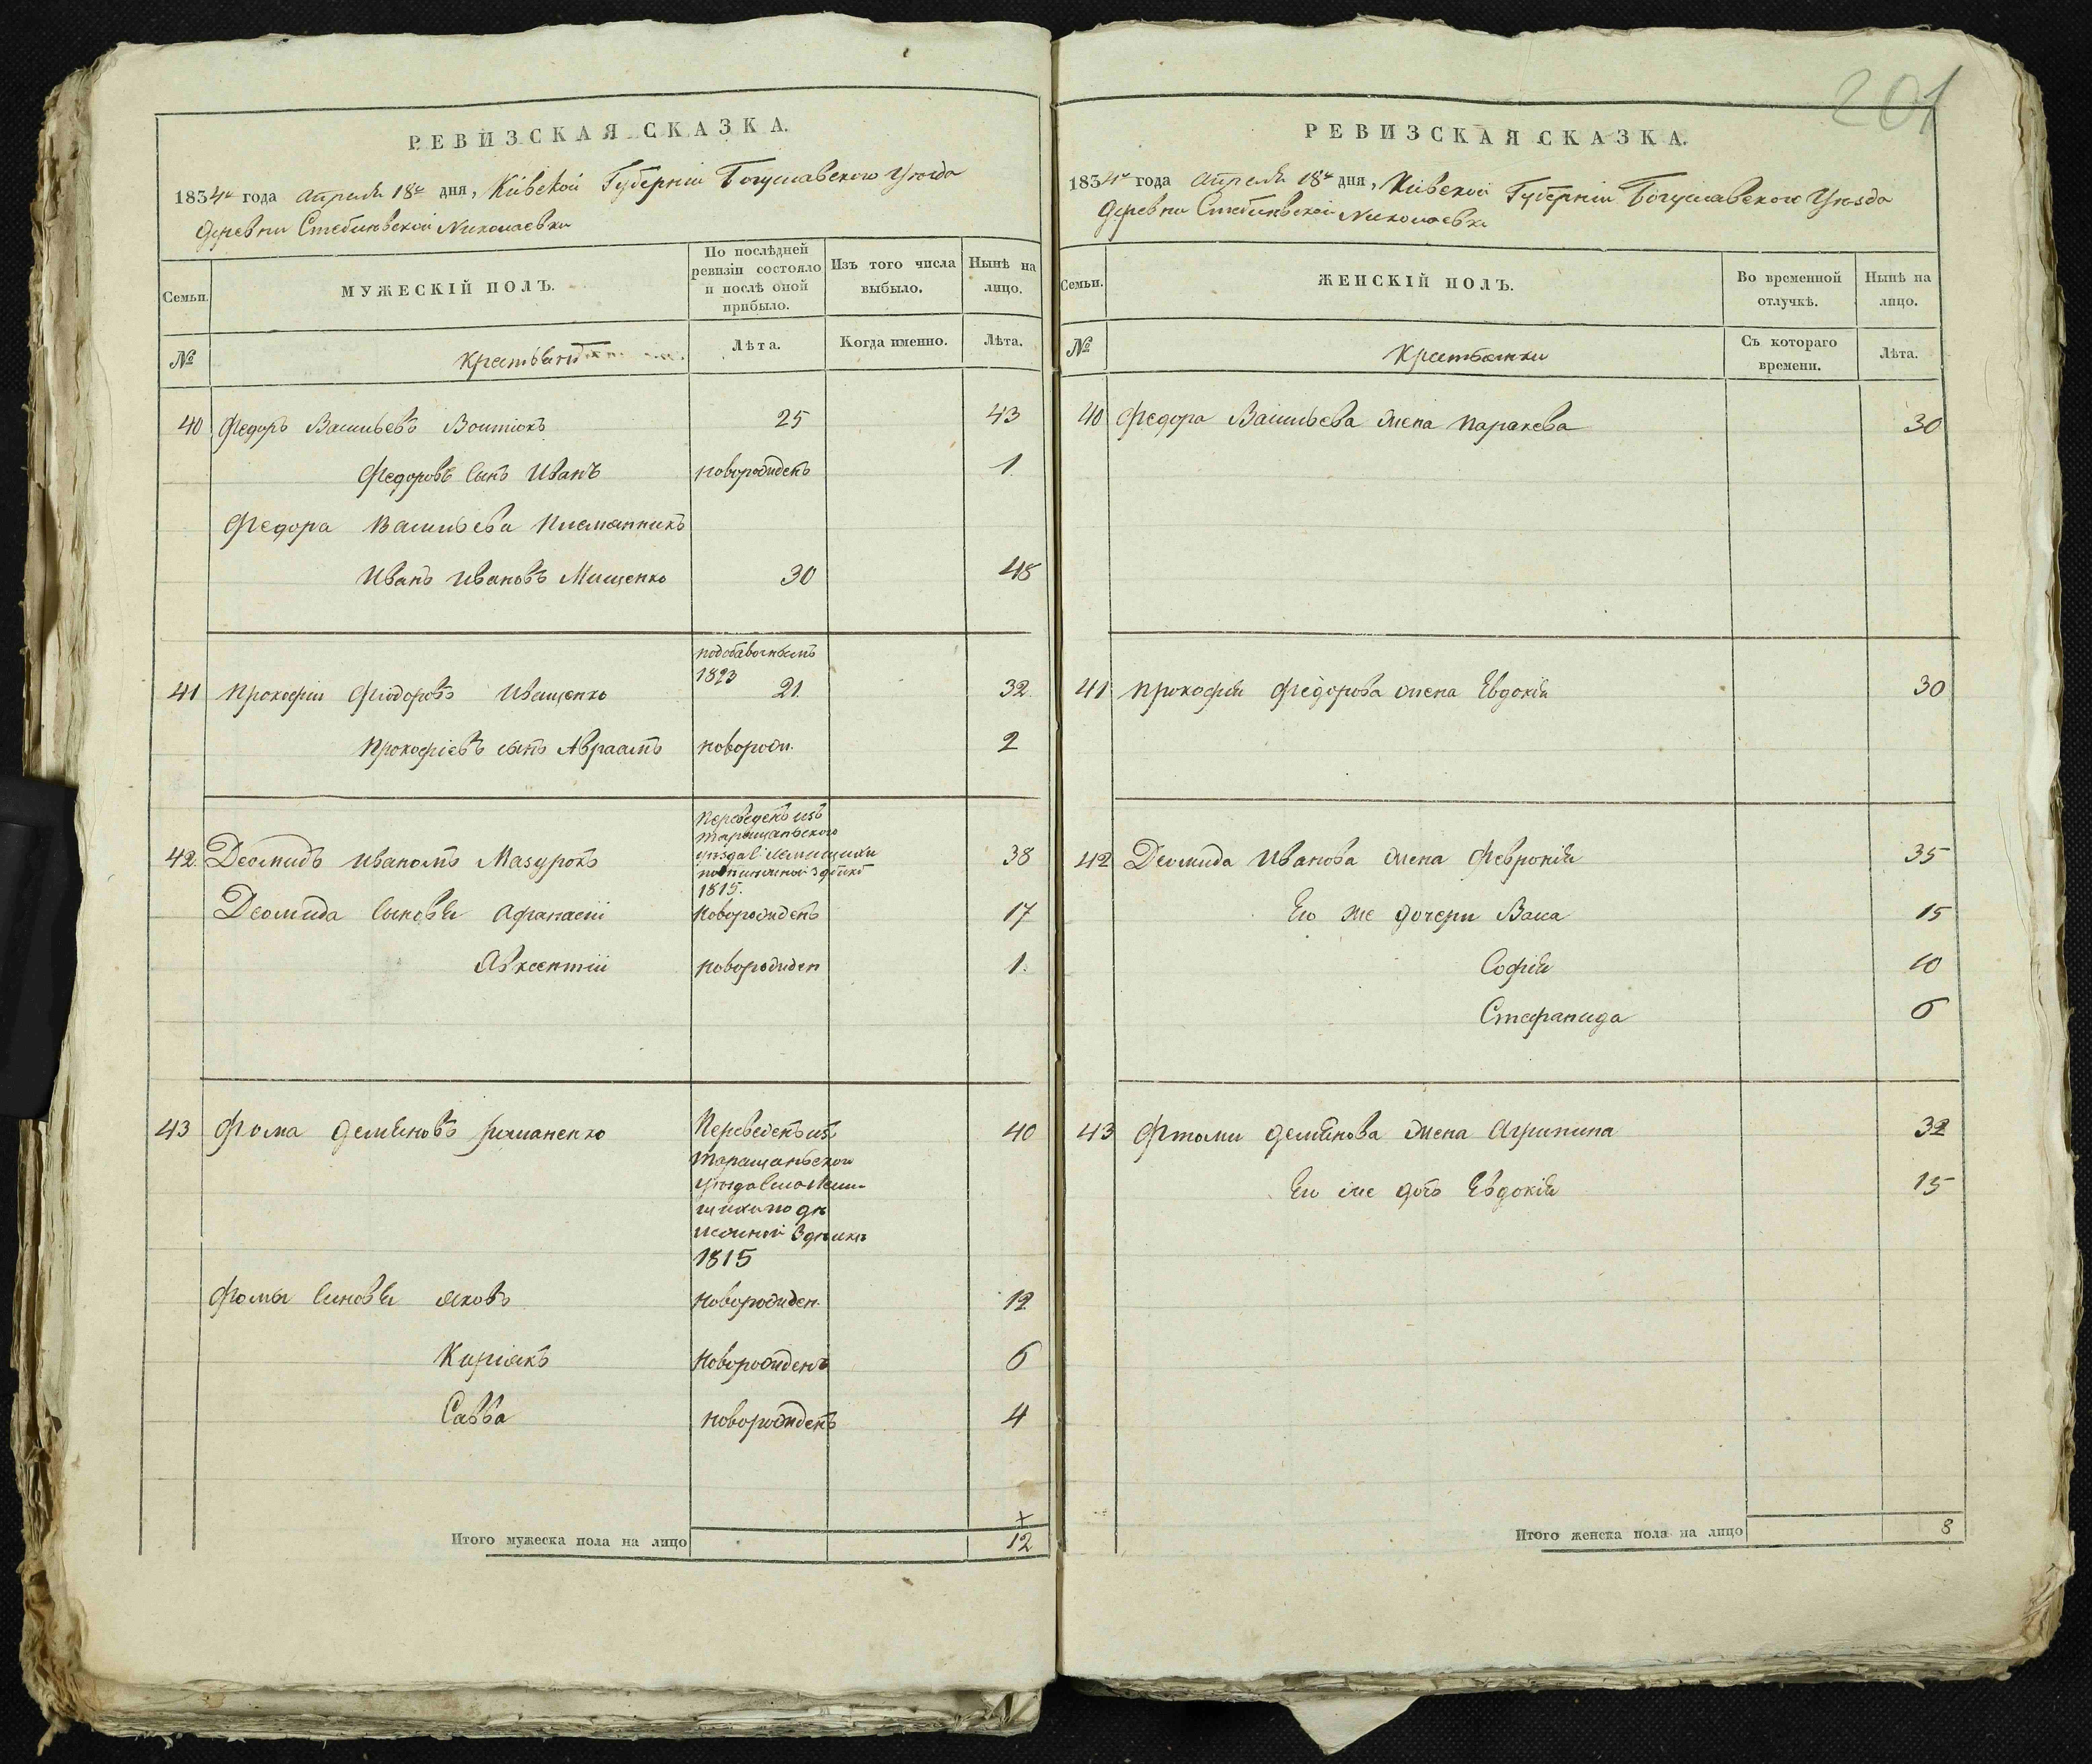 201
РЕВИЗСКАЯ СКАЗКА.
1834го года Апреля 18го дня, Кіевской Губерніи Богуславского Уезда
деревни Стебліовской Николаевки
Семьи. МУЖЕСКІЙ ПОЛЪ. По послѣдней ревизіи состояло и послѣ оной прибыло. Изъ того числа выбыло. Нынѣ на лицо.
№ Лѣта. Когда именно. Лѣта.
40 Федоръ Васильевъ 25 43
Федоровъ сынъ Иванъ новорожденъ 1
Федора Васильева Племанникъ
Иванъ Ивановъ Мищенко 30 48
1823
41 Прокофій Фіодоровъ Иващенко 21 32
Прокофіевъ сынъ Авраамъ новорожд. 2
Переведенъ изъ
Таращаньского
42 Деомидъ Ивановъ Мазурокъ уезда 38
1815.
Деомида сыновья Афанасій новорожденъ 17
Авксентій новорожден 1.
43 Фома Демяновъ Романенко Переведенъ изъ 40
Таращаньского
уезда
1815
Фомы сыновья Яковъ новорожден. 12
Киріякъ новорожденъ 6
Савва новорожденъ 4
Итого мужеска пола на лицо 12
РЕВИЗСКАЯ СКАЗКА.
1834го года Апреля 18го дня, Кіевской Губерніи Богуславского Уезда
Деревни Стебліовской Николаевки
Семьи. ЖЕНСКІЙ ПОЛЪ. Во временной отлучкѣ. Нынѣ на лицо.
№ Крестьянки Съ котораго времени. Лѣта.
40 Федора Васильева жена Паракева 30
41 Прокофія Федорова жена Евдокія 30
42 Деомида Иванова жена Февронія 35
Ею же дочери Васа 15
Софія 10
Стефанида 6
43 Фтоми Демянова жена Агрипина 32
Ею же дочъ Евдокія 15
Итого женска пола на лицо 8